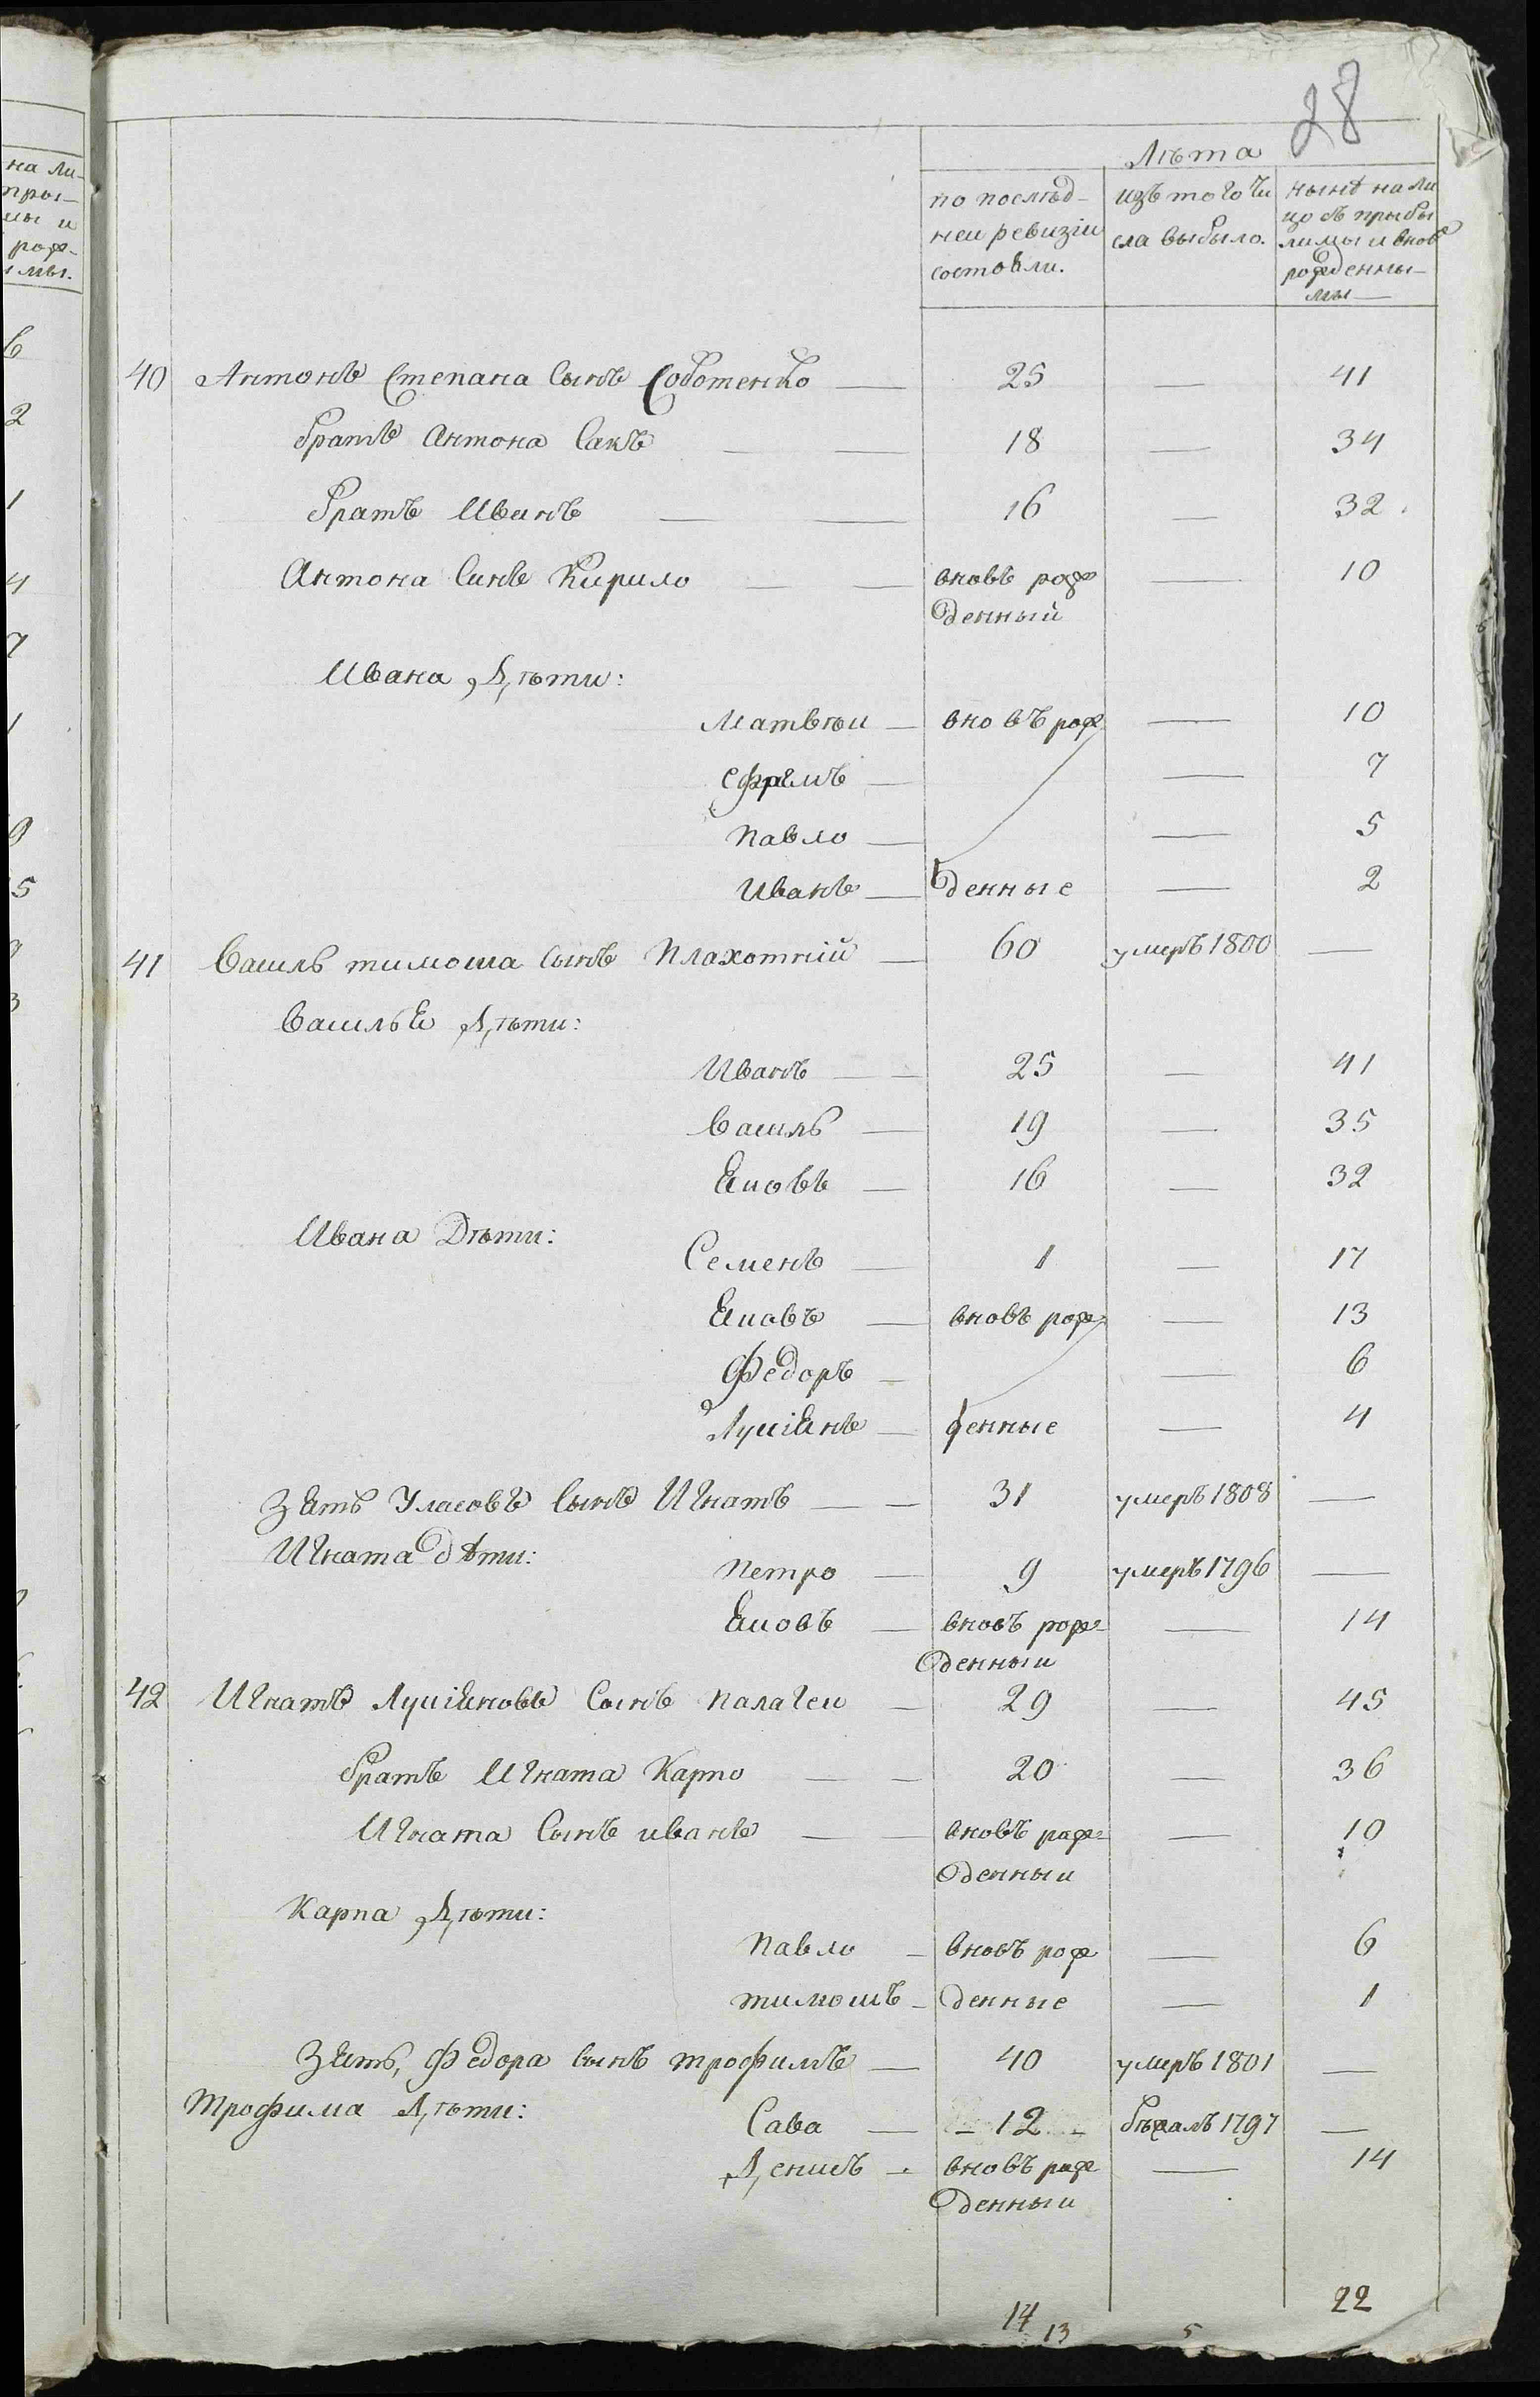 28
Лѣта
по послѣд-
неи ревизіи
состояли.
изъ того чи
сла выбыло.
нынѣ на ли
цо съ прибы
лимы и внов
рожденны-
мы
40 Антонъ Степана сынъ Соботенко — 25 — 41
братъ Антона Сакъ — — 18 — 34
братъ Иванъ — — 16 — 32
Антона Синъ Кирило — — вновь рож — 10
денный
Ивана Дѣти:
Матвѣи — вновъ рож — 10
Ефремъ — — 7
Павло — — 5
Иванъ — денные — 2
41 Василь тимоша сынъ Плахотній — 60 умеръ 1800 —
Василья Дѣти:
Иванъ — — 25 — 41
Василь — 19 — 35
Яковъ — 16 — 32
Ивана Дѣти:
Семенъ — 1 — 17
Яковъ — вновъ рож — 13
Федоръ — — 6
Лукіянъ — денные — 4
Зять Уласовъ сынъ Игнатъ — — 31 умеръ 1808 —
Игната дѣти:
Петро — 9 умеръ 1796 —
Яковъ — вновъ рож- — 14
денныи
42 Игнатъ Лукіяновъ Сынъ Палагеи — 29 — 45
братъ Игната Карпо — — 20 — 36
Игната Сынъ иванъ — — вновъ рож- — 10
денныи
Карпа Дѣти:
Павло — вновъ рож — 6
тимошъ — денные — 1
Зять, Федора сынъ трофимъ — 40 умеръ 1801 —
Трофима Дѣти:
Сава — - 12 - бѣжалъ 1797 —
Денисъ — вновъ рож — 14
денныи
14 13 5 22
на ли-
прыы-
мы и
рож-
мы.
6
2
1
4
7
1
9
5
3